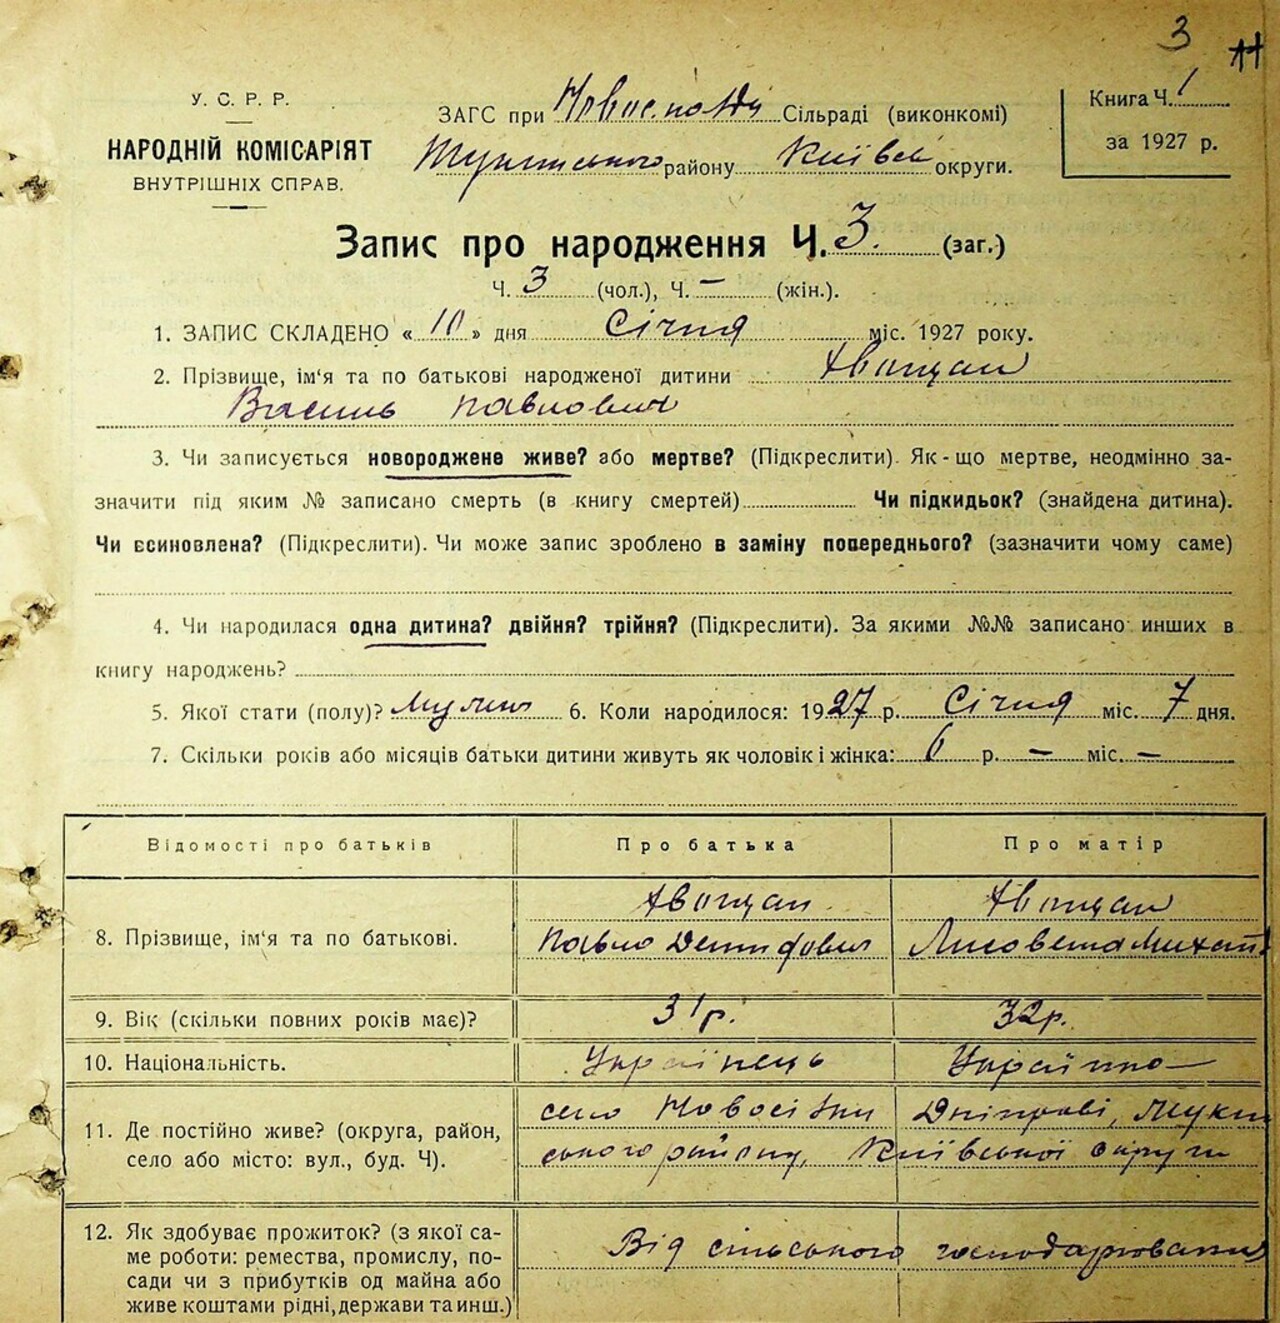 3
У. С. Р. Р.
НАРОДНІЙ КОМІСАРІЯТ
ВНУТРІШНІХ СПРАВ.
ЗАГС при Сільраді (виконкомі)
району Київсь округи.
Книга Ч. 1
за 1927 р.
Запис про народження Ч. 3. (заг.)
Ч. 3 (чол.), Ч. – (жін.).
1. ЗАПИС СКЛАДЕНО « 10 » дня Січня міс. 1927 року.
2. Прізвище, ім'я та по батькові народженої дитини
Василь Павлович
3. Чи записується новороджене живе? або мертве? (Підкреслити). Як-що мертве, неодмінно за-
значити під яким № записано смерть (в книгу смертей) Чи підкидьок? (знайдена дитина).
Чи всиновлена? (Підкреслити). Чи може запис зроблено в заміну попереднього? (зазначити чому саме)
4. Чи народилася одна дитина? двійня? трійня? (Підкреслити). За якими №№ записано инших в
книгу народжень?
5. Якої стати (полу)? 6. Коли народилося: 1927 р. Січня міс. 7 дня.
7. Скільки років або місяців батьки дитини живуть як чоловік і жінка: 6 р. – міс. –
Відомості про батьків Про батька Про матір
8. Прізвище, ім'я та по батькові.
Павло Демидович Лисовета Михай
9. Вік (скільки повних років має)? 31 р. 32 р.
10. Національність. Українець Українка
11. Де постійно живе? (округа, район, село
село або місто: вул., буд. Ч). ського району, Київської округи
12. Як здобуває прожиток? (з якої са- Від сільського господарювання
ме роботи: ремества, промислу, по-
сади чи з прибутків од майна або
живе коштами рідні, держави та инш.)